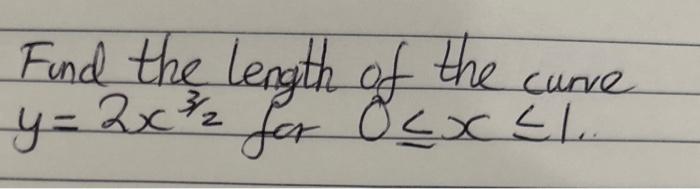 Find the length of the curve
y = 2x^3/2 for 0 ≤ x ≤ 1..